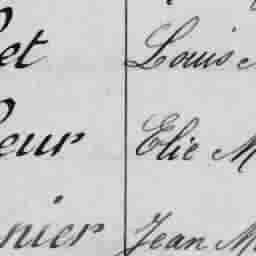 et Louis
eur Elie M
nier Jean M